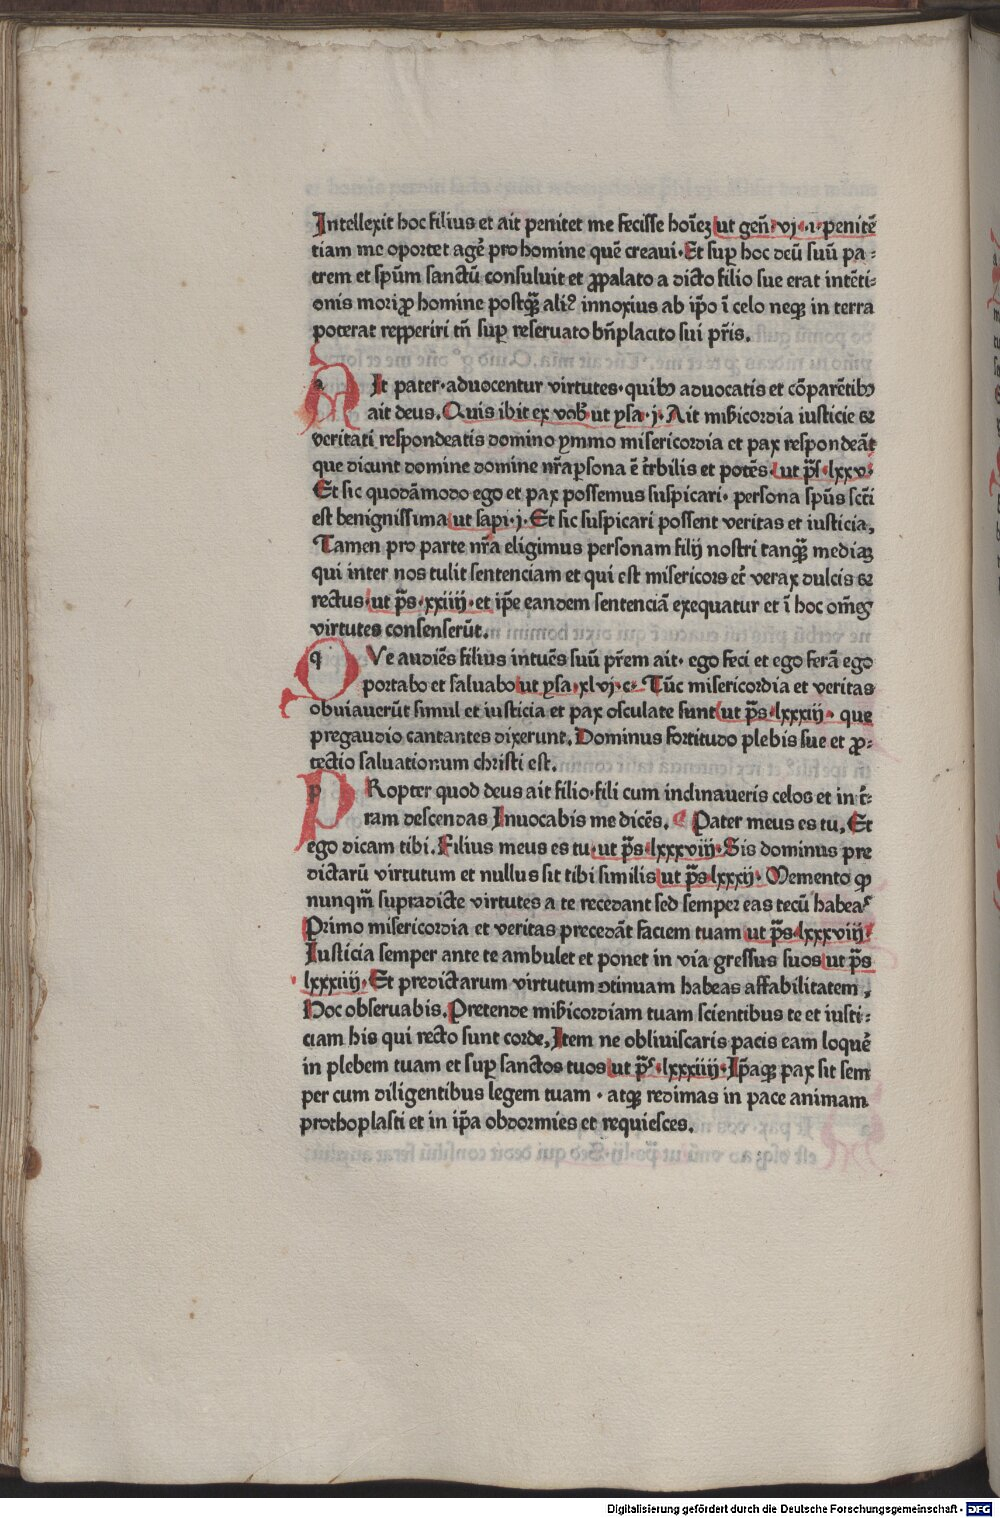 Intellexit hoc filius et ait penitet me fecisse hoīez ut gen̄· vj ·i· penitē
tiam me oportet agē pro homine quē creaui· Et sup hoc deū suū pa-
trem et spūm sanctū consuluit et ꝓpalato a dicto filio sue erat intēti-
onis mori ꝓ homine postqꝫ aliꝰ innoxius ab ip̄o ī celo neqꝫ in terra
poterat reꝑperiri tn̄ sup reseruato bn̄placito sui pr̄is.
AIt pater· aduocentur virtutes· quibꝫ aduocatis et cōparētibꝫ
ait deus. Quis ibit ex vob̄ ut ysa· j· Ait mīcordia iusticie ⁊
veritati respondeatis domino ymmo misericordia et pax respondeāt
que dicunt domine domine nr̄a ꝑsona ē tr̄bilis et potēs· ut p̄s· lxxv·
Et sic quodāmodo ego et pax possemus suspicari· persona spūs sct̄i
est benignissima ut sapi· j· Et sic suspicari possent veritas et iusticia,
Tamen pro parte nr̄a eligimus personam filij nostri tanqꝫ mediaꝫ
qui inter nos tulit sentenciam et qui est misericors et verax dulcis ⁊
rectus· ut p̄s· xxiiij· et ip̄e eandem sentenciā exequatur et ī hoc om̄eꝫ
virtutes consenserūt.
q QVe audiēs filius intuēs suū pr̄em ait· ego feci et ego ferā ego
portabo et saluabo ut ysa· xlvj· c· Tūc misericordia et veritas
obuiauerūt simul et iusticia et pax osculate sunt ut p̄s· lxxxiij· que
pregaudio cantantes dixerunt. Dominus fortitudo plebis sue et ꝓ-
tectio saluationum christi est.
p PRopter quod deus ait filio· fili cum inclinaueris celos et in t̄-
ram descendas Inuocabis me dicēs. Pater meus es tu. Et
ego dicam tibi. Filius meus es tu· ut p̄s· lxxxviij· Sis dominus pre
dictarū virtutum et nullus sit tibi similis ut p̄s· lxxxij· Memento ꝙ
nunqm̄ supradicte virtutes a te recedant sed semper eas tecū habeas
Primo misericordia et veritas precedāt faciem tuam ut p̄s· lxxxviij·
Iusticia semper ante te ambulet et ponet in via gressus suos ut p̄s
lxxxiiij· Et predictarum virtutum ↄtinuam habeas affabilitatem,
Hoc obseruabis. Pretende mīcordiam tuam scientibus te et iusti-
ciam his qui recto sunt corde, Item ne obliuiscaris pacis eam loquē
in plebem tuam et sup sanctos tuos ut p̄s· lxxxiiij· Ip̄aqꝫ pax sit sem
per cum diligentibus legem tuam· atqꝫ redimas in pace animam
prothoplasti et in ip̄a obdormies et requiesces.
Digitalisierung gefördert durch die Deutsche Forschungsgemeinschaft - DFG